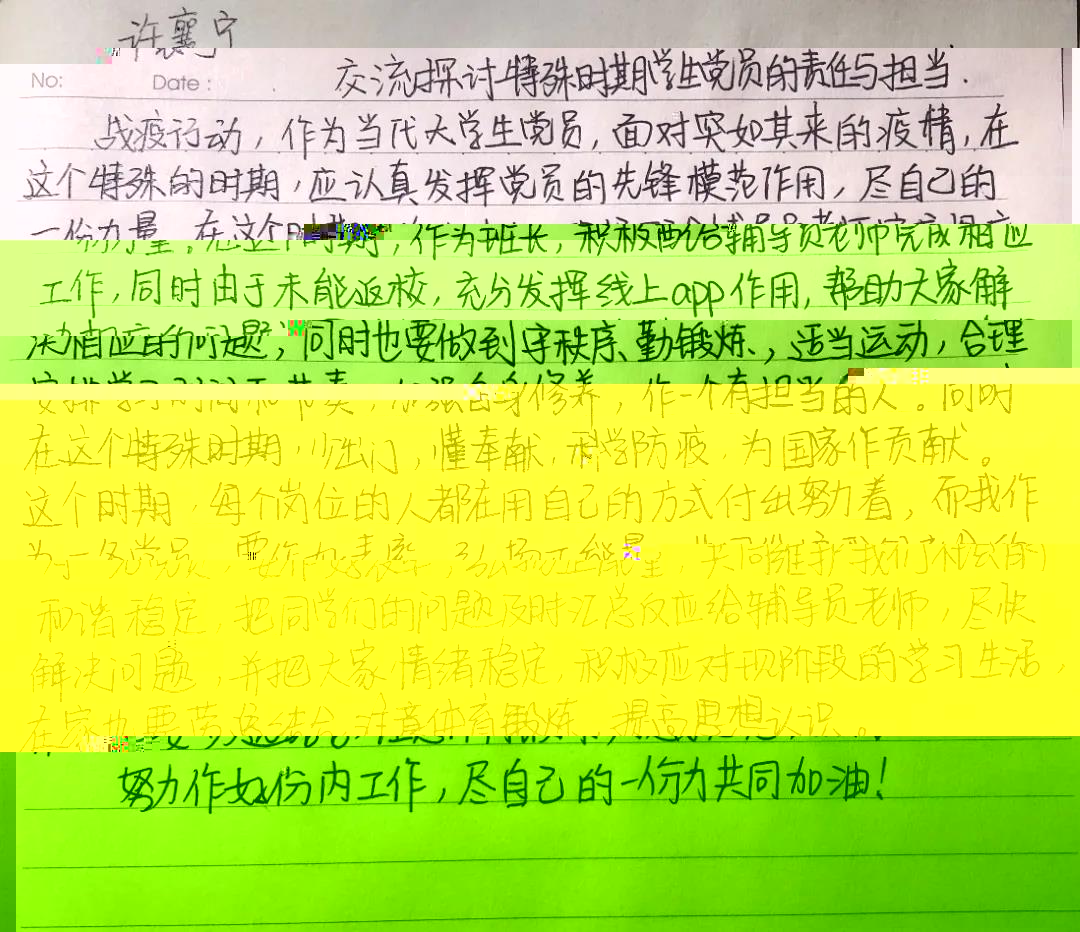 许襄宁
No: Date: 交流探讨特殊时期学生党员的责任与担当.
战疫行动，作为当代大学生党员，面对突如其来的疫情，在
这个特殊的时期，应认真发挥党员的先锋模范作用，尽自己的
一份力量。在这个时期，作为班长，积极配合辅导员老师完成相应
工作，同时由于未能返校，充分发挥线上app作用，帮助大家解
决相应的问题，同时也要做到守秩序、勤锻炼、，适当运动，合理
安排学习时间和节奏，加强自身修养，作一个有担当的人。同时
在这个特殊时期，少出门，懂奉献，科学防疫，为国家作贡献。
这个时期，每个岗位的人都在用自己的方式付出努力着，而我作
为一名党员，要作好表率，弘扬正能量，共同维护我们社会的
和谐稳定，把同学们的问题及时汇总反应给辅导员老师，尽快
解决问题，并把大家情绪稳定，积极应对现阶段的学习生活，
在家也要劳逸结合，注意体育锻炼，提高思想认识。
努力作好份内工作，尽自己的一份力共同加油！